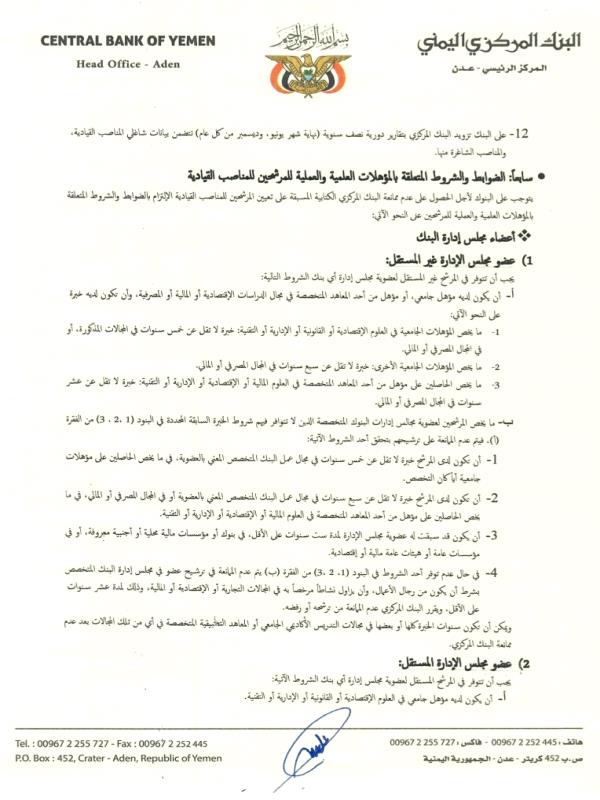 CENTRAL BANK OF YEMEN
Head Office - Aden
بسم الله الرحمن الرحيم
البنك المركزي اليمني
المركز الرئيسي - عدن
12- على البنك تزويد البنك المركزي بتقارير دورية نصف سنوية (نهاية شهر يونيو، وديسمبر من كل عام) تتضمن بيانات شاغلي المناصب القيادية،
والمناصب الشاغرة منها.
• سابعاً: الضوابط والشروط المتعلقة بالمؤهلات العلمية والعملية للمرشحين للمناصب القيادية
يتوجب على البنوك لأجل الحصول على عدم ممانعة البنك المركزي الكتابية المسبقة على تعيين المرشحين للمناصب القيادية الإلتزام بالضوابط والشروط المتعلقة
بالمؤهلات العلمية والعملية للمرشحين على النحو الآتي:
❖ أعضاء مجلس إدارة البنك
1) عضو مجلس الإدارة غير المستقل:
يجب أن تتوفر في المرشح غير المستقل لعضوية مجلس إدارة أي بنك الشروط التالية:
أ- أن يكون لديه مؤهل جامعي، أو مؤهل من أحد المعاهد المتخصصة في مجال الدراسات الإقتصادية أو المالية أو المصرفية، وأن تكون لديه خبرة
على النحو الآتي:
1- ما يخص المؤهلات الجامعية في العلوم الإقتصادية أو القانونية أو الإدارية أو التقنية: خبرة لا تقل عن خمس سنوات في المجالات المذكورة، أو
في المجال المصرفي أو المالي.
2- ما يخص المؤهلات الجامعية الأخرى: خبرة لا تقل عن سبع سنوات في المجال المصرفي أو المالي.
3- ما يخص الحاصلين على مؤهل من أحد المعاهد المتخصصة في العلوم المالية أو الإقتصادية أو الإدارية أو التقنية: خبرة لا تقل عن عشر
سنوات في المجال المصرفي أو المالي.
ب- ما يخص المرشحين لعضوية مجالس إدارات البنوك المتخصصة الذين لا تتوافر فيهم شروط الخبرة السابقة المحددة في البنود (1، 2، 3) من الفقرة
(أ)، فيتم عدم الممانعة على ترشيحهم بتحقق أحد الشروط الآتية:
1- أن تكون لدى المرشح خبرة لا تقل عن خمس سنوات في مجال عمل البنك المتخصص المعني بالعضوية، في ما يخص الحاصلين على مؤهلات
جامعية أياً كان التخصص.
2- أن تكون لدى المرشح خبرة لا تقل عن سبع سنوات في مجال عمل البنك المتخصص المعني بالعضوية أو في المجال المصرفي أو المالي، في ما
يخص الحاصلين على مؤهل من أحد المعاهد المتخصصة في العلوم المالية أو الإقتصادية أو الإدارية أو التقنية.
3- أن يكون قد سبقت له عضوية مجلس الإدارة لمدة ست سنوات على الأقل، في بنوك أو مؤسسات مالية محلية أو أجنبية معروفة، أو في
مؤسسات عامة أو هيئات عامة مالية أو إقتصادية.
4- في حال عدم توفر أحد الشروط في البنود (1، 2، 3) من الفقرة (ب) يتم عدم الممانعة في ترشيح عضو في مجلس إدارة البنك المتخصص
بشرط أن يكون من رجال الأعمال، وأن يزاول نشاطاً مرخصاً به في المجالات التجارية أو الإقتصادية أو المالية، وذلك لمدة عشر سنوات
على الأقل، ويقرر البنك المركزي عدم الممانعة من ترشحه أو رفضه.
ويمكن أن تكون سنوات الخبرة كلها أو بعضها في مجالات التدريس الأكاديمي الجامعي أو المعاهد التطبيقية المتخصصة في أي من تلك المجالات بعد عدم
ممانعة البنك المركزي.
2) عضو مجلس الإدارة المستقل:
يجب أن تتوفر في المرشح المستقل لعضوية مجلس إدارة أي بنك الشروط الآتية:
أ- أن يكون لديه مؤهل جامعي في العلوم الإقتصادية أو القانونية أو الإدارية أو التقنية.
Tel. : 00967 2 255 727 - Fax : 00967 2 252 445
P.O. Box : 452, Crater - Aden, Republic of Yemen
هاتف: 00967 2 252 445 - فاكس: 00967 2 255 727
ص.ب 452 كريتر - عدن - الجمهورية اليمنية